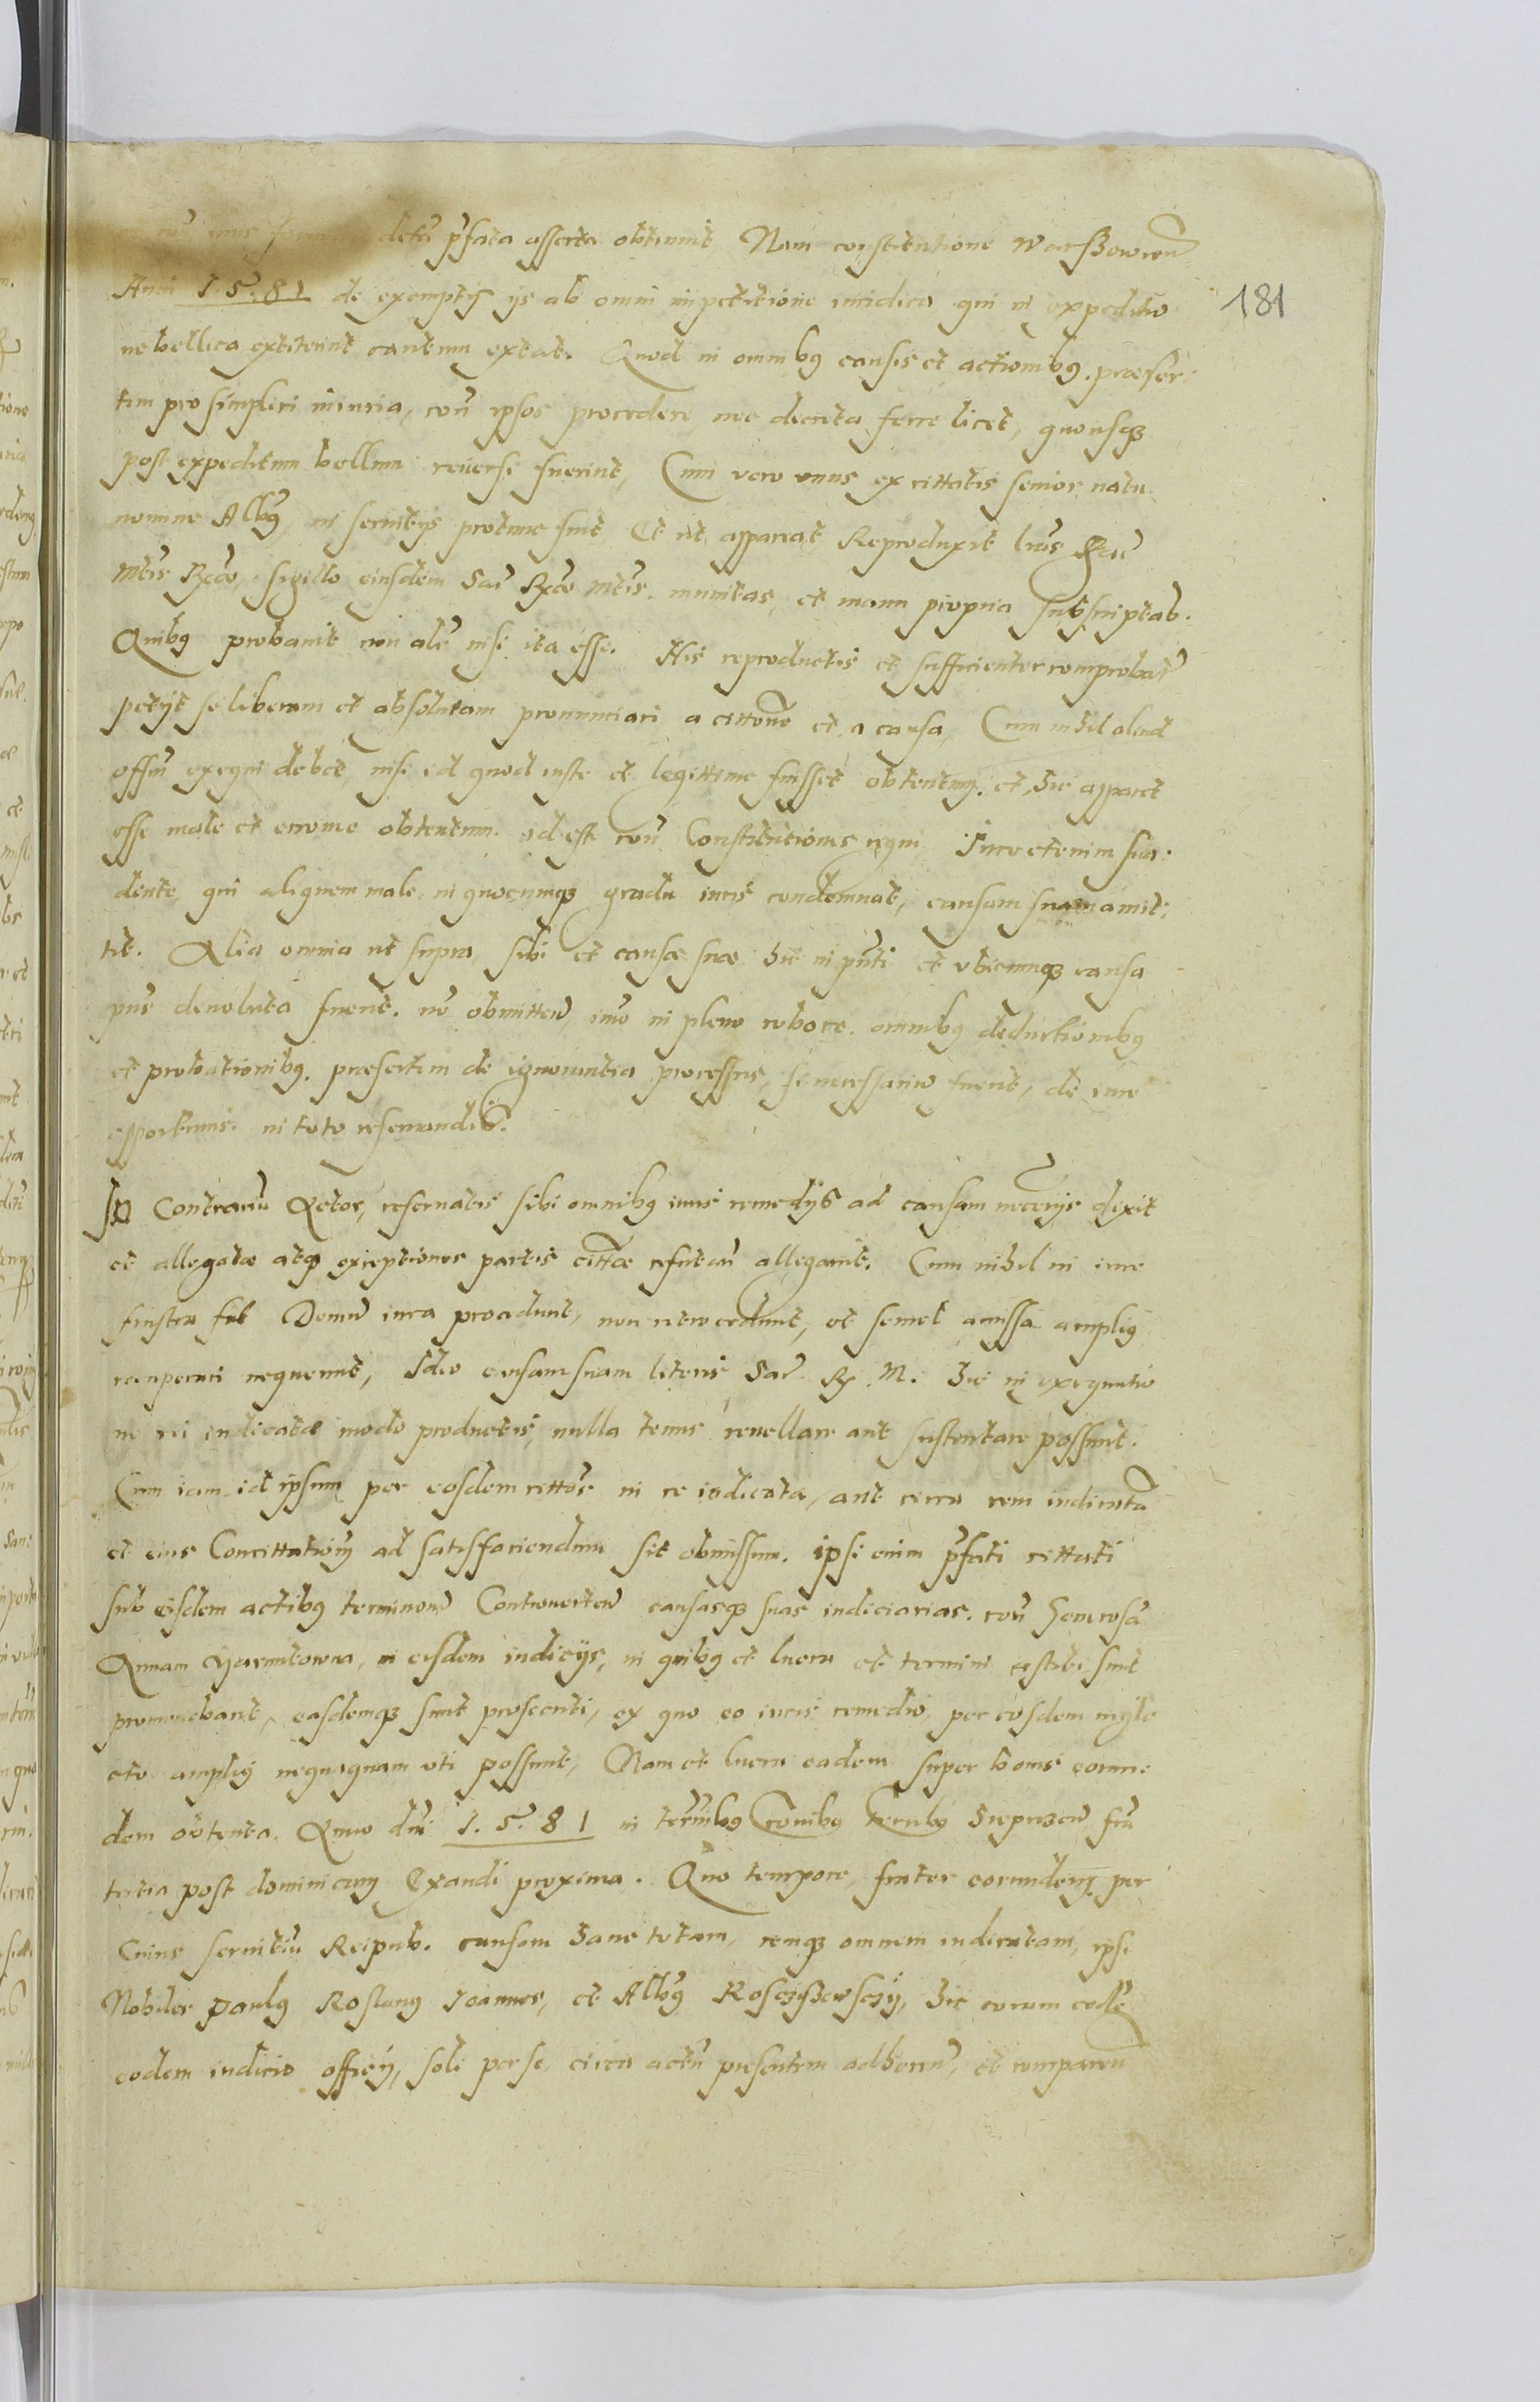 iuris detu pfata asserta obtinuit Nam constitutione Warßowien
Anni 1.5.81 de exemptis ijs ab omni impetitione iuridica qui in expeditio
ne bellica extiterint cautum extat. Quod in omnibus causis et actionibus praeser:
tim pro simplici iniuria, con ipsos procedere nec decreta ferre licet, quousq
post expeditum bellum reuersi fuerint, Cum vero unus ex cittatis senior natu
nomine Albus in seruitijs protunc fuit Et ut appareat Reproduxit lras Sac
Mtis Rgae, sigillo eiusdem Sac Rgae Mtis munitas, et manu propria subscriptas.
Quibus probauit non alr nisi ita esse. His reproductis et sufficienter comprobat
petijt se liberum et absolutam pronunciari a cittone et a causa, Cum nihil aliud
offm exequi debet, nisi id quod iuste et legittime fuisset obtentum, et hic apparet
esse male et erronie obtentum id est con Constitutiones regni, Iure etenim sua:
dente, qui aliquem male in quocumq gradu iuris condemnat, causam suam amit:
tit. Alia omnia ut supra, sibi et causae suae hic in pnti et vbicumq causa
pns deuoluta fuerit, no obmitten imo in pleno robore. omnibus deductionibus
et probationibus, praesertim de ignorantia processus, si necessariu fuerit, de iure
opportunis in toto reseruandis.
In Contrariu Actor, reseruatis sibi omnibus iuris remedijs ad causam necerijs dixit
et allegatae atq exceptiones partis cittae refutan allegauit. Cum nihil in iure
frustra fit Demu iura procedunt, non retrocedunt, et semel amissa amplius
recuperari nequeunt, Ideo causam suam literis Sac R. M. hic in exequutio
ne rei iudicatae modo productis, nulla tenus reuellare aut sustentare possunt.
Cum iam id ipsum per eosdem cittos in re iudicata, aut circa rem iudicata
et eius Concittationi ad satisfaciendum sit obmissum. ipsi enim pfati cittati
sub eisdem actibus terminoru Controuerten causasq suas iudiciarias, con Generosa
Annam Jarmutowna, in eisdem iudicijs, in quibus et lucra et termini restiti sunt
promouebant, easdemq sunt prosecuti, ex quo eo iuris remedio, per eosdem
amplius nequaquam uti possunt, Nam et lucra eadem super bonis eorun:
dem obtenta. Anno dni 1.5.81 in terminibus Tonibus terrlibus fria
tertia post dominicam Exaudi proxima. Quo tempore, frater eorundem per
Cuius seruitiu Reipub. causam hanc totam, remq omnem iudicatam, ipsi
Nobiles Paulus Roslanus Ioannes, et Albus Roscißewscij, hic coram
eodem iudicio officij, soli per se, circa actu presentem adheren, et comparen
181